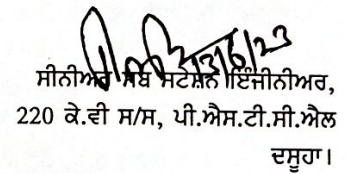 13/6/23
ਸੀਨੀਅਰ ਸਬ ਸਟੇਸ਼ਨ ਇੰਜੀਨੀਅਰ,
220 ਕੇ.ਵੀ ਸ/ਸ, ਪੀ.ਐਸ.ਟੀ.ਸੀ.ਐਲ
ਦਸੂਹਾ।